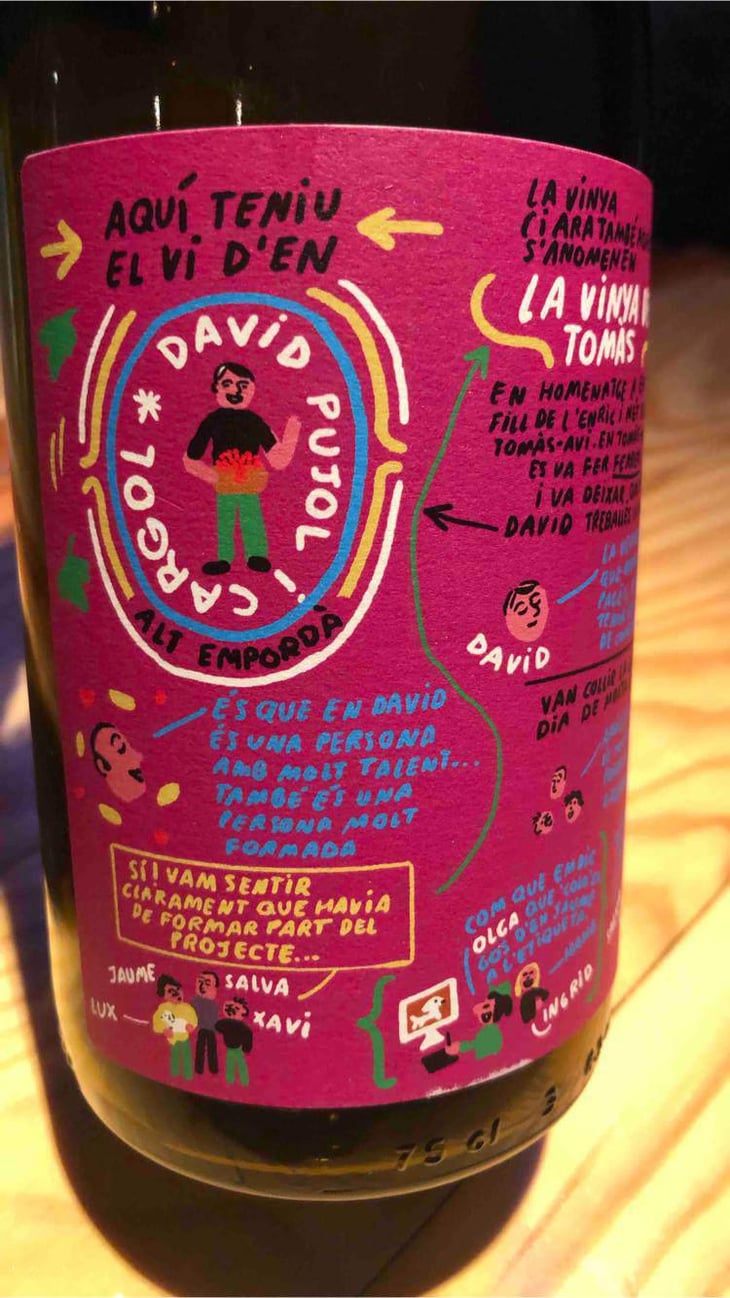 AQUÍ TENIU
EL VI D'EN
DAVID PUJOL I CARGOL *
ALT EMPORDÀ
ÉS QUE EN DAVID
ÉS UNA PERSONA
AMB MOLT TALENT...
TAMBÉ ÉS UNA
PERSONA MOLT
FORMADA
SÍ! VAM SENTIR
CLARAMENT QUE HAVIA
DE FORMAR PART DEL
PROJECTE...
JAUME
SALVA
LUX
XAVI
LA VINYA
ARA TAMBÉ
S'ANOMENEN
LA VINYA
TOMÀS
EN HOMENATGE
FILL DE L'ENRIC I NET
TOMÀS-AVI. EN
ES VA FER
I VA DEIXAR
DAVID
DAVID
VAN COLLIR
DIA DE
COM QUE EM DIC
OLGA QUE
GOS D'EN JAUME
A L'ETIQUETA
INGRID
75 cl 3